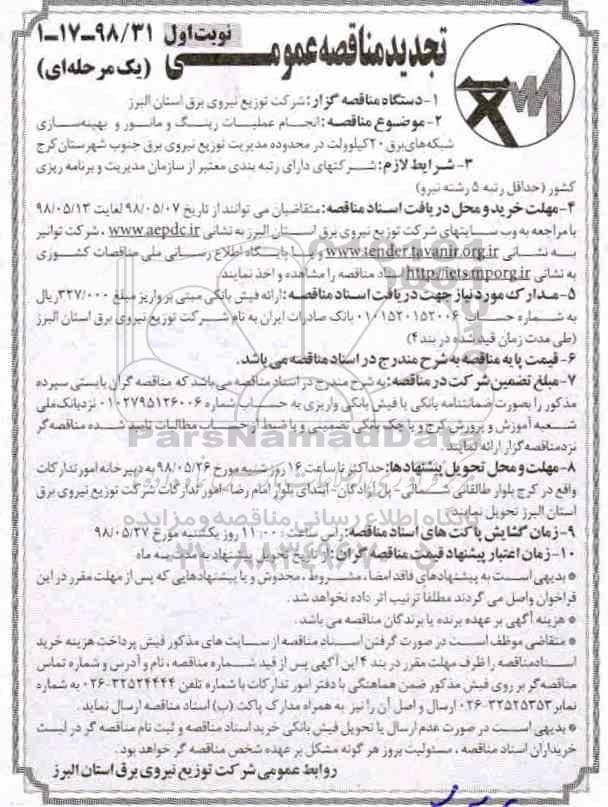 نوبت اول ۹۸/۳۱-۱۷-۱
تجدید مناقصه عمومی (یک مرحله‌ای)
۱- دستگاه مناقصه گزار: شرکت توزیع نیروی برق استان البرز
۲- موضوع مناقصه: انجام عملیات رینگ و مانور و بهینه‌سازی
شبکه‌های برق ۲۰ کیلوولت در محدوده مدیریت توزیع نیروی برق جنوب شهرستان کرج
۳- شرایط لازم: شرکتهای دارای رتبه بندی معتبر از سازمان مدیریت و برنامه ریزی
کشور (حداقل رتبه ۵ رشته نیرو)
۴- مهلت خرید و محل دریافت اسناد مناقصه: متقاضیان می توانند از تاریخ ۹۸/۰۵/۰۷ لغایت ۹۸/۰۵/۱۳
با مراجعه به وب سایتهای شرکت توزیع نیروی برق استان البرز به نشانی www.aepdc.ir ، شرکت توانیر
به نشانی www.tender.tavanir.org.ir و یا پایگاه اطلاع رسانی ملی مناقصات کشوری
به نشانی http://iets.mporg.ir اسناد مناقصه را مشاهده و اخذ نمایند.
۵- مدارک مورد نیاز جهت دریافت اسناد مناقصه: ارائه فیش بانکی مبنی بر واریز مبلغ ۳۲۷/۰۰۰ ریال
به شماره حساب ۰۱۰۱۵۲۰۱۵۲۰۰۶ بانک صادرات ایران به نام شرکت توزیع نیروی برق استان البرز
(طی مدت زمان قید شده در بند ۴)
۶- قیمت پایه مناقصه به شرح مندرج در اسناد مناقصه می باشد.
۷- مبلغ تضمین شرکت در مناقصه: به شرح مندرج در اسناد مناقصه می باشد که مناقصه گران بایستی سپرده
مذکور را بصورت ضمانتنامه بانکی یا فیش بانکی واریزی به حساب شماره ۰۱۰۲۷۹۵۱۲۶۰۰۶ نزد بانک ملی
شعبه آموزش و پرورش کرج و یا چک بانکی تضمینی و یا ضبط از حساب مطالبات تایید شده مناقصه گر
نزد مناقصه گزار ارائه نمایند.
۸- مهلت و محل تحویل پیشنهادها: حداکثر تا ساعت ۱۶ روز شنبه مورخ ۹۸/۰۵/۲۶ به دبیرخانه امور تدارکات
واقع در کرج بلوار طالقانی شمالی- پل آزادگان- ابتدای بلوار امام رضا- امور تدارکات شرکت توزیع نیروی برق
استان البرز تحویل نمایند.
۹- زمان گشایش پاکت های اسناد مناقصه: راس ساعت ۱۱:۰۰ روز یکشنبه مورخ ۹۸/۰۵/۲۷
۱۰- زمان اعتبار پیشنهاد قیمت مناقصه گران: از تاریخ تحویل پیشنهاد به مدت سه ماه
* بدیهی است به پیشنهادهای فاقد امضا، مشروط، مخدوش و یا پیشنهادهایی که پس از مهلت مقرر در این
فراخوان واصل می گردند مطلقا ترتیب اثر داده نخواهد شد.
* هزینه آگهی بر عهده برنده یا برندگان مناقصه می باشد.
* متقاضی موظف است در صورت گرفتن اسناد مناقصه از سایت های مذکور فیش پرداخت هزینه خرید
اسناد مناقصه را ظرف مهلت مقرر در بند ۴ این آگهی پس از قید شماره مناقصه، نام و آدرس و شماره تماس
مناقصه گر بر روی فیش مذکور ضمن هماهنگی با دفتر امور تدارکات با شماره تلفن ۰۲۶-۳۲۵۲۴۴۴۴ به شماره
نمابر ۰۲۶-۳۲۵۲۵۳۵۳ ارسال و اصل آن را نیز به همراه مدارک پاکت (ب) اسناد مناقصه ارسال نماید.
* بدیهی است در صورت عدم ارسال یا تحویل فیش بانکی خرید اسناد مناقصه و ثبت نام مناقصه گر در لیست
خریداران اسناد مناقصه، مسئولیت بروز هر گونه مشکل بر عهده شخص مناقصه گر خواهد بود.
روابط عمومی شرکت توزیع نیروی برق استان البرز
ParsNamadData
پایگاه اطلاع رسانی مناقصه و مزایده